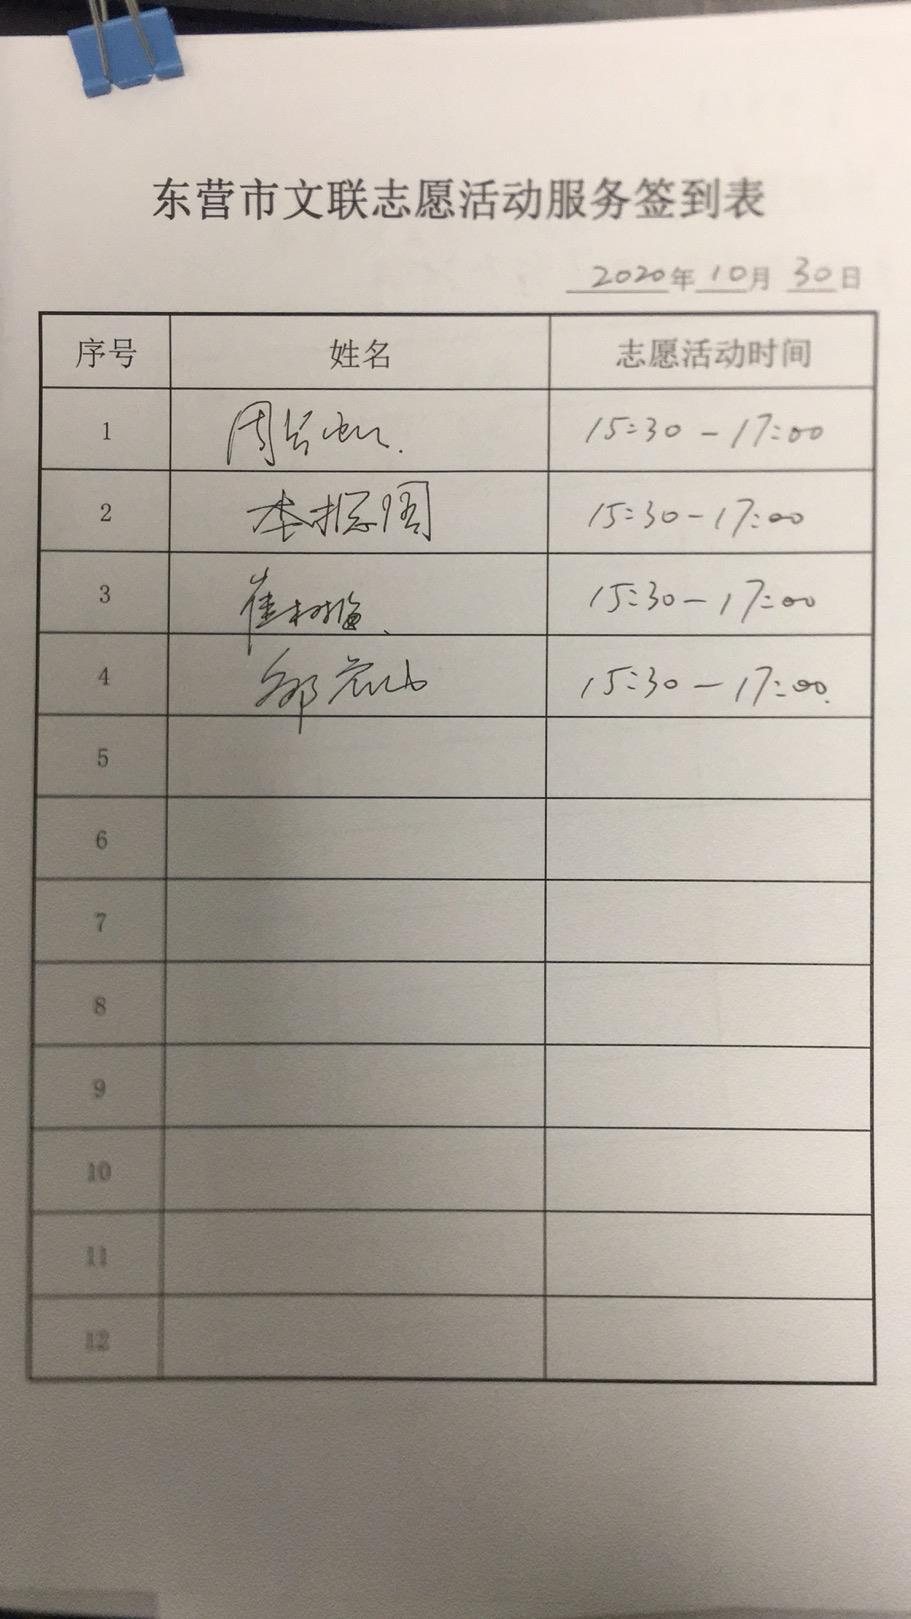 东营市文联志愿活动服务签到表
2020年10月30日
序号 姓名 志愿活动时间
1 15:30-17:00
2 15:30-17:00
3 崔树 15:30-17:00
4 15:30-17:00
5
6
7
8
9
10
11
12